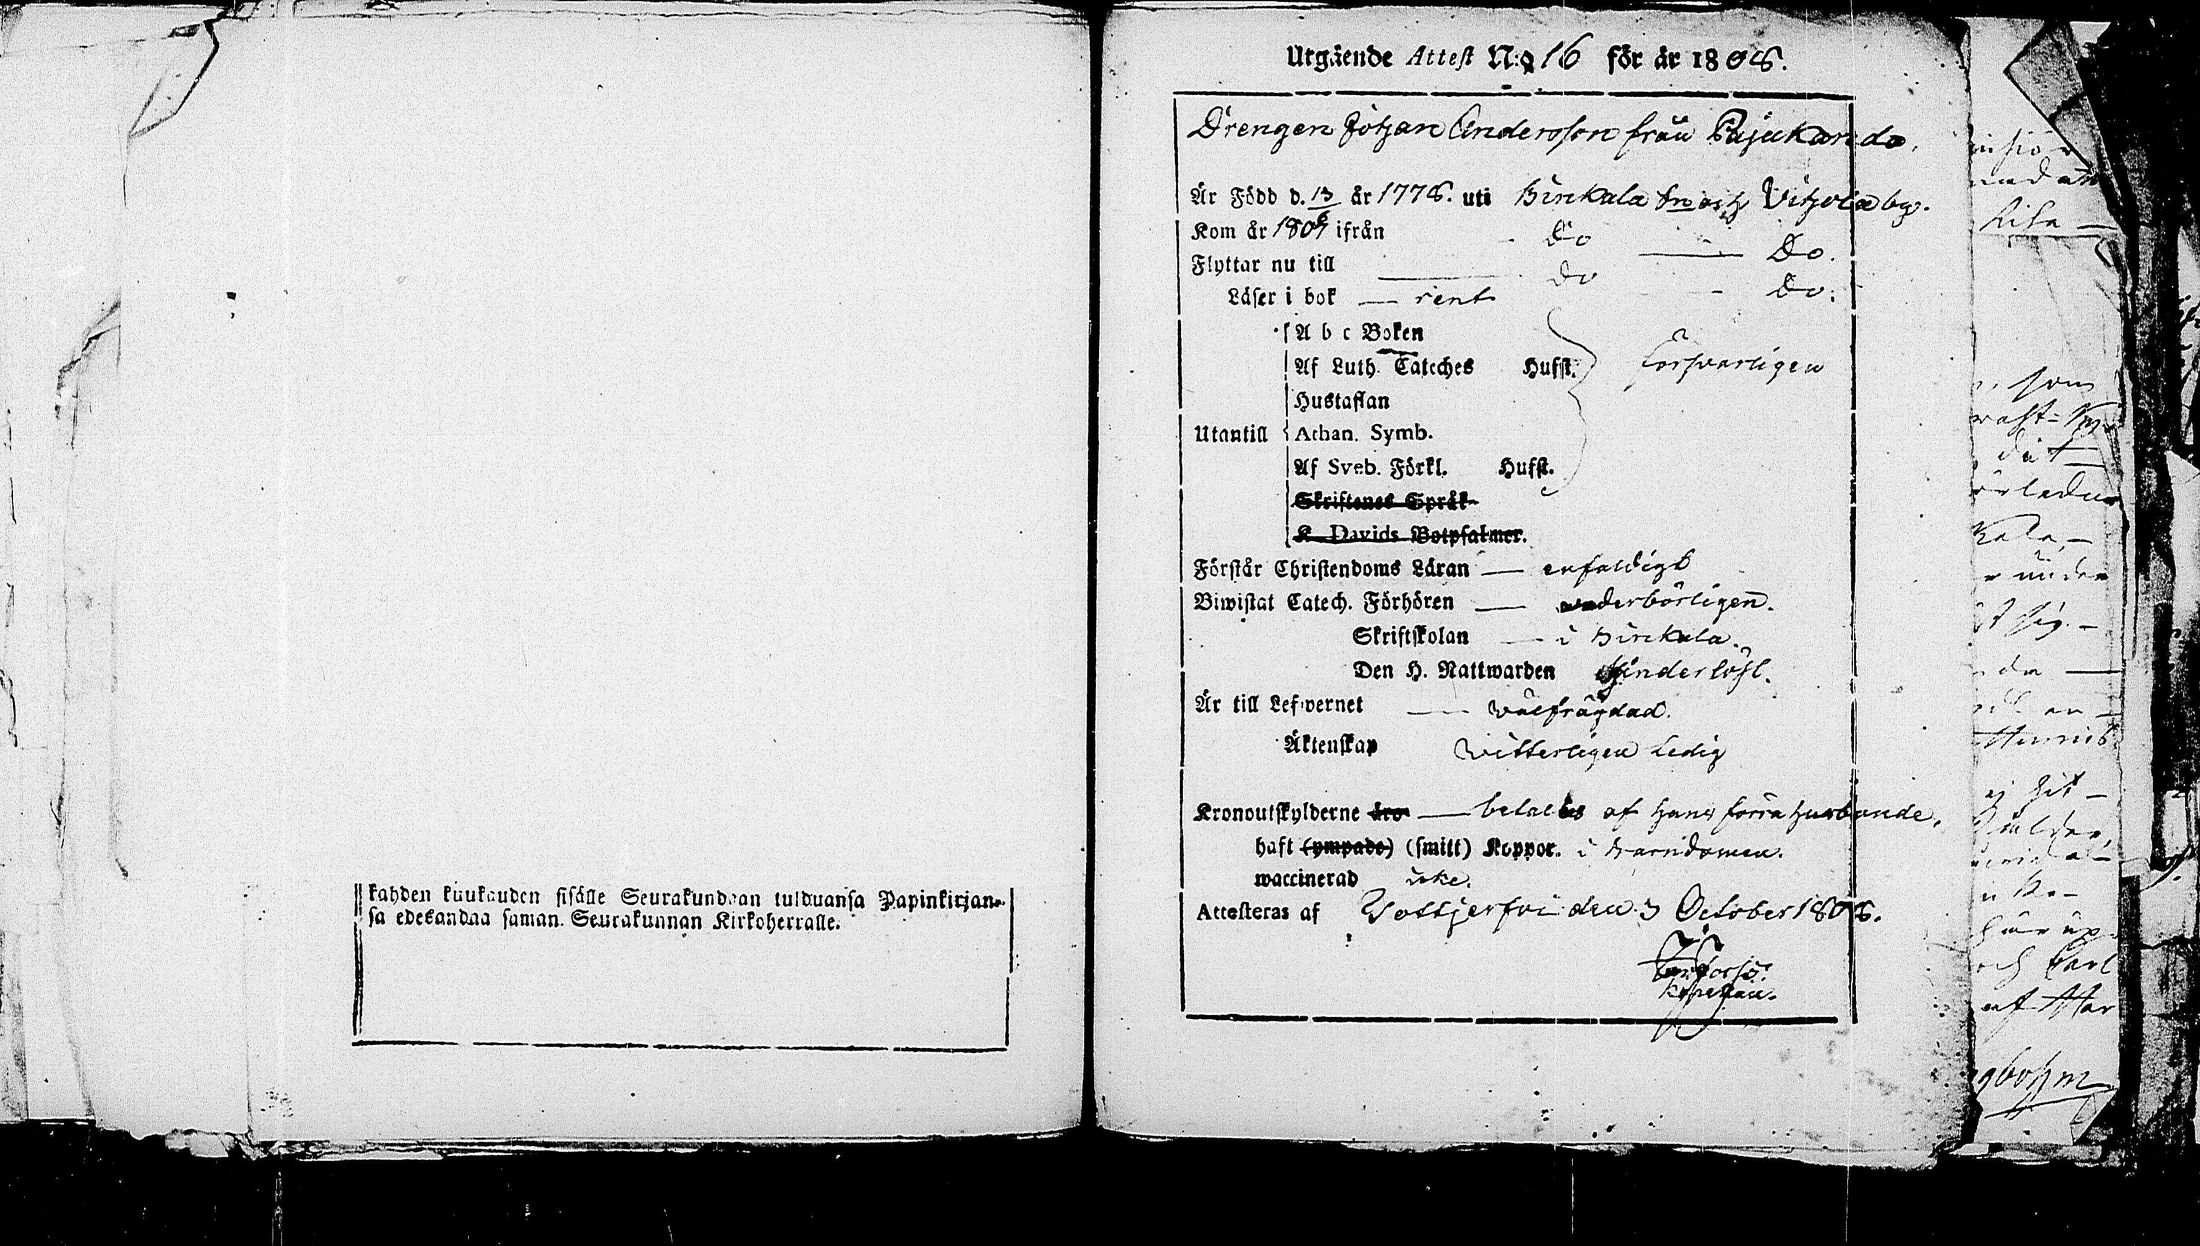 kahden kuukauden sisälle Seurakundaan tulduansa Papinkirjan-
sa edesandaa saman Seurakunnan Kirkoherralle.
Utgående Attest N:o 16 för år 1808.
Drengen Johan Andersson från Pajukando.
Är Född d. 13 år 1778. uti Birkala Sn och Vihola by.
Kom år ifrån Do — Do.
Flyttar nu till — Do — Do.
Läser i bok — rent
A b c Boken
Af Luth. Cateches Hufst. Försvarligen
Hustaflan
Utantill Athan. Symb.
Af Sveb. Förkl. Hufst.
Skriftenes Språk
K. Davids Botpsalmer.
Förstår Christendoms Läran — enfaldigt
Biwistat Catech. Förhören — wederbörligen.
Skriftskolan — i Birkala.
Den H. Nattwarden hinderlöst.
Är till Lefwernet — wälfrägdad.
Äktenskap witterligen Ledig
Kronoutskylderne äro — betaltes af hans förra husbonde.
haft (ympade) (smitt) Koppor. i barndomen.
waccinerad icke.
Attesteras af den 3 October 1808.
som
under
och Carl
af